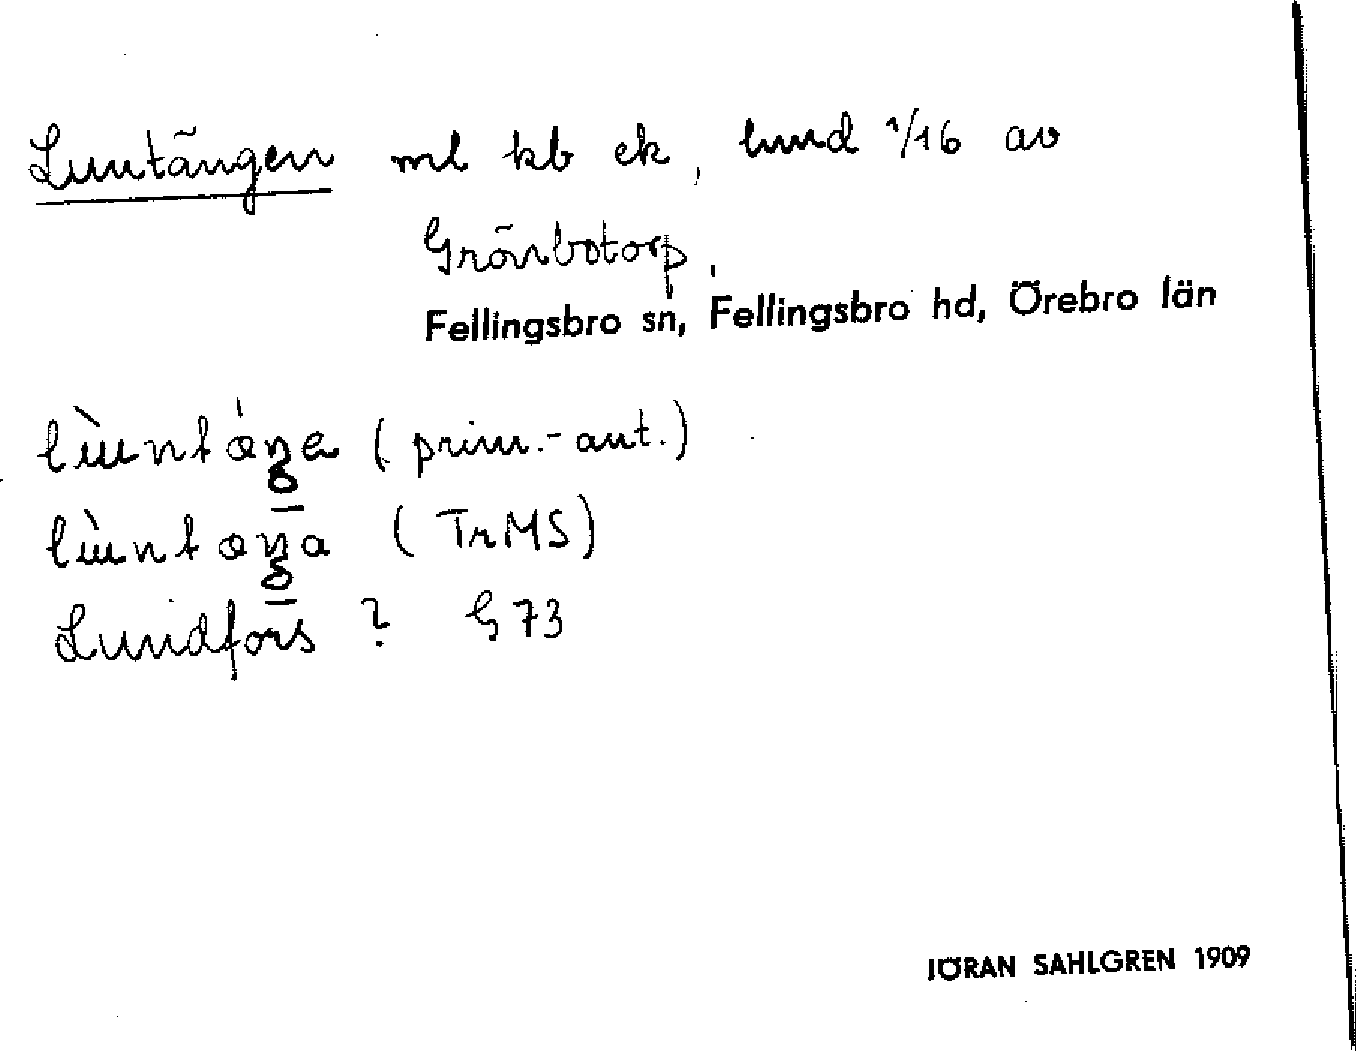 Luntängen ml kb ek, lund 1/16 av
Grönbotorp,
Fellingsbro sn, Fellingsbro hd, Örebro län
(prim.-ant.)
(TrMS)
Lundfors? G 73
JÖRAN SAHLGREN 1909